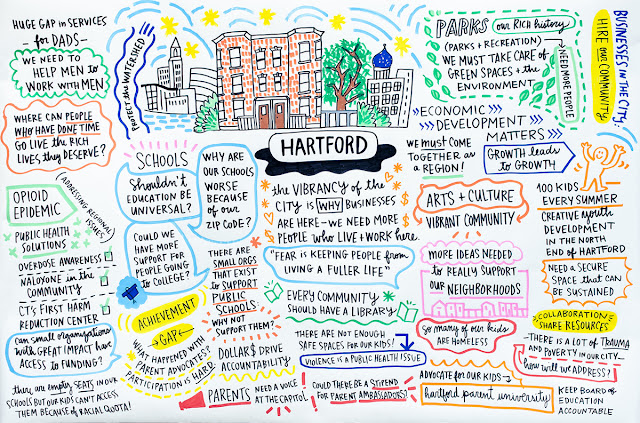 HUGE GAP in SERVICES
- for DADS -
WE NEED to
HELP MEN to
WORK with MEN
WHERE CAN PEOPLE
WHO HAVE DONE TIME
GO LIVE the RICH
LIVES they DESERVE?
OPIOID
EPIDEMIC
(ADDRESSING REGIONAL
ISSUES)
PUBLIC HEALTH
SOLUTIONS
OVERDOSE AWARENESS
NALOXONE in the
COMMUNITY
CT'S FIRST HARM
REDUCTION CENTER
Can small organizations
with GREAT IMPACT have
ACCESS to FUNDING?
they are EMPTY SEATS in OUR
SCHOOLS but OUR KIDS CAN'T ACCESS
THEM BECAUSE of RACIAL QUOTA!
PROTECT the WATERSHED
SCHOOLS
Shouldn't
EDUCATION BE
UNIVERSAL?
WHY ARE
our SCHOOLS
WORSE
BECAUSE
of our
ZIP CODE?
COULD WE
HAVE MORE
SUPPORT FOR
PEOPLE GOING
to COLLEGE?
THERE ARE
SMALL ORGS
THAT EXIST
to SUPPORT
PUBLIC
SCHOOLS:
WHY NOT
SUPPORT THEM?
ACHIEVEMENT
GAP
WHAT HAPPENED WITH
PARENT ADVOCATES?
PARTICIPATION is HARD.
DOLLAR$ DRIVE
ACCOUNTABILITY
PARENTS NEED A VOICE
AT the CAPITOL
HARTFORD
the VIBRANCY of the
CITY is WHY BUSINESSES
ARE HERE - WE NEED MORE
PEOPLE who LIVE + WORK here.
"FEAR is KEEPING PEOPLE from
LIVING A FULLER LIFE"
EVERY COMMUNITY
SHOULD HAVE A LIBRARY
THERE ARE NOT ENOUGH
SAFE SPACES FOR OUR KIDS!
VIOLENCE is A PUBLIC HEALTH ISSUE
COULD THERE BE A STIPEND
FOR PARENT AMBASSADORS?
PARKS our RICH history
(PARKS + RECREATION)
WE MUST TAKE CARE of
GREEN SPACES + the
ENVIRONMENT
NEED MORE PEOPLE
BUSINESSES in the CITY:
HIRE our COMMUNITY
ECONOMIC
DEVELOPMENT
MATTERS
WE must COME
TOGETHER as
A REGION!
GROWTH leads
to GROWTH
ARTS + CULTURE
VIBRANT COMMUNITY
MORE IDEAS NEEDED
to REALLY SUPPORT
our NEIGHBORHOODS
So many of our kids
ARE HOMELESS
100 KIDS
EVERY SUMMER
CREATIVE youth
DEVELOPMENT
IN THE NORTH
END of HARTFORD
NEED A SECURE
SPACE that CAN
BE SUSTAINED
COLLABORATION:
SHARE RESOURCES
THERE IS A LOT of TRAUMA
AND POVERTY IN OUR CITY
how will we ADDRESS?
ADVOCATE FOR OUR KIDS
hartford parent university
KEEP BOARD of
EDUCATION
ACCOUNTABLE